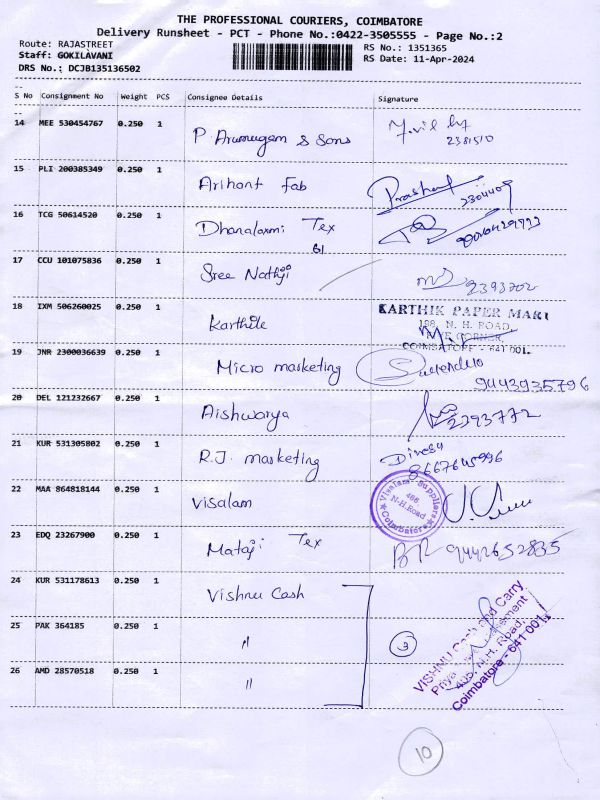 THE PROFESSIONAL COURIERS, COIMBATORE
Delivery Runsheet - PCT - Phone No.:0422-3505555 - Page No.:2
Route: RAJASTREET
Staff: GOKILAVANI
DRS No.: DCJB135136502
RS No.: 1351365
RS Date: 11-Apr-2024
S No Consignment No Weight PCS Consignee Details Signature
14 MEE 530454767 0.250 1 P. Arumugam & Sons
2381510
15 PLI 200385349 0.250 1 Arihant Fab Prashant
16 TCG 50614520 0.250 1 Dhanalaxmi Tex
17 CCU 101075836 0.250 1 Sree Nathji 2393202
18 IXM 506260025 0.250 1 Karthik KARTHIK PAPER MART
188, N. H. ROAD,
COIMBATORE - 641 001.
19 JNR 2300036639 0.250 1 Micro marketing
9443935796
20 DEL 121232667 0.250 1 Aishwarya 2393772
21 KUR 531305802 0.250 1 R.J. marketing Dinesh
8667645996
22 MAA 864818144 0.250 1 Visalam Visalam Supplies
486
N-H.Road
Coimbatore
23 EDQ 23267900 0.250 1 Mataji Tex BR 9442652835
24 KUR 531178613 0.250 1 Vishnu Cash VISHNU Cash and Carry
405, N.H. Road,
Coimbatore - 641 001
25 PAK 364185 0.250 1 " 3
26 AMD 28570518 0.250 1 "
10